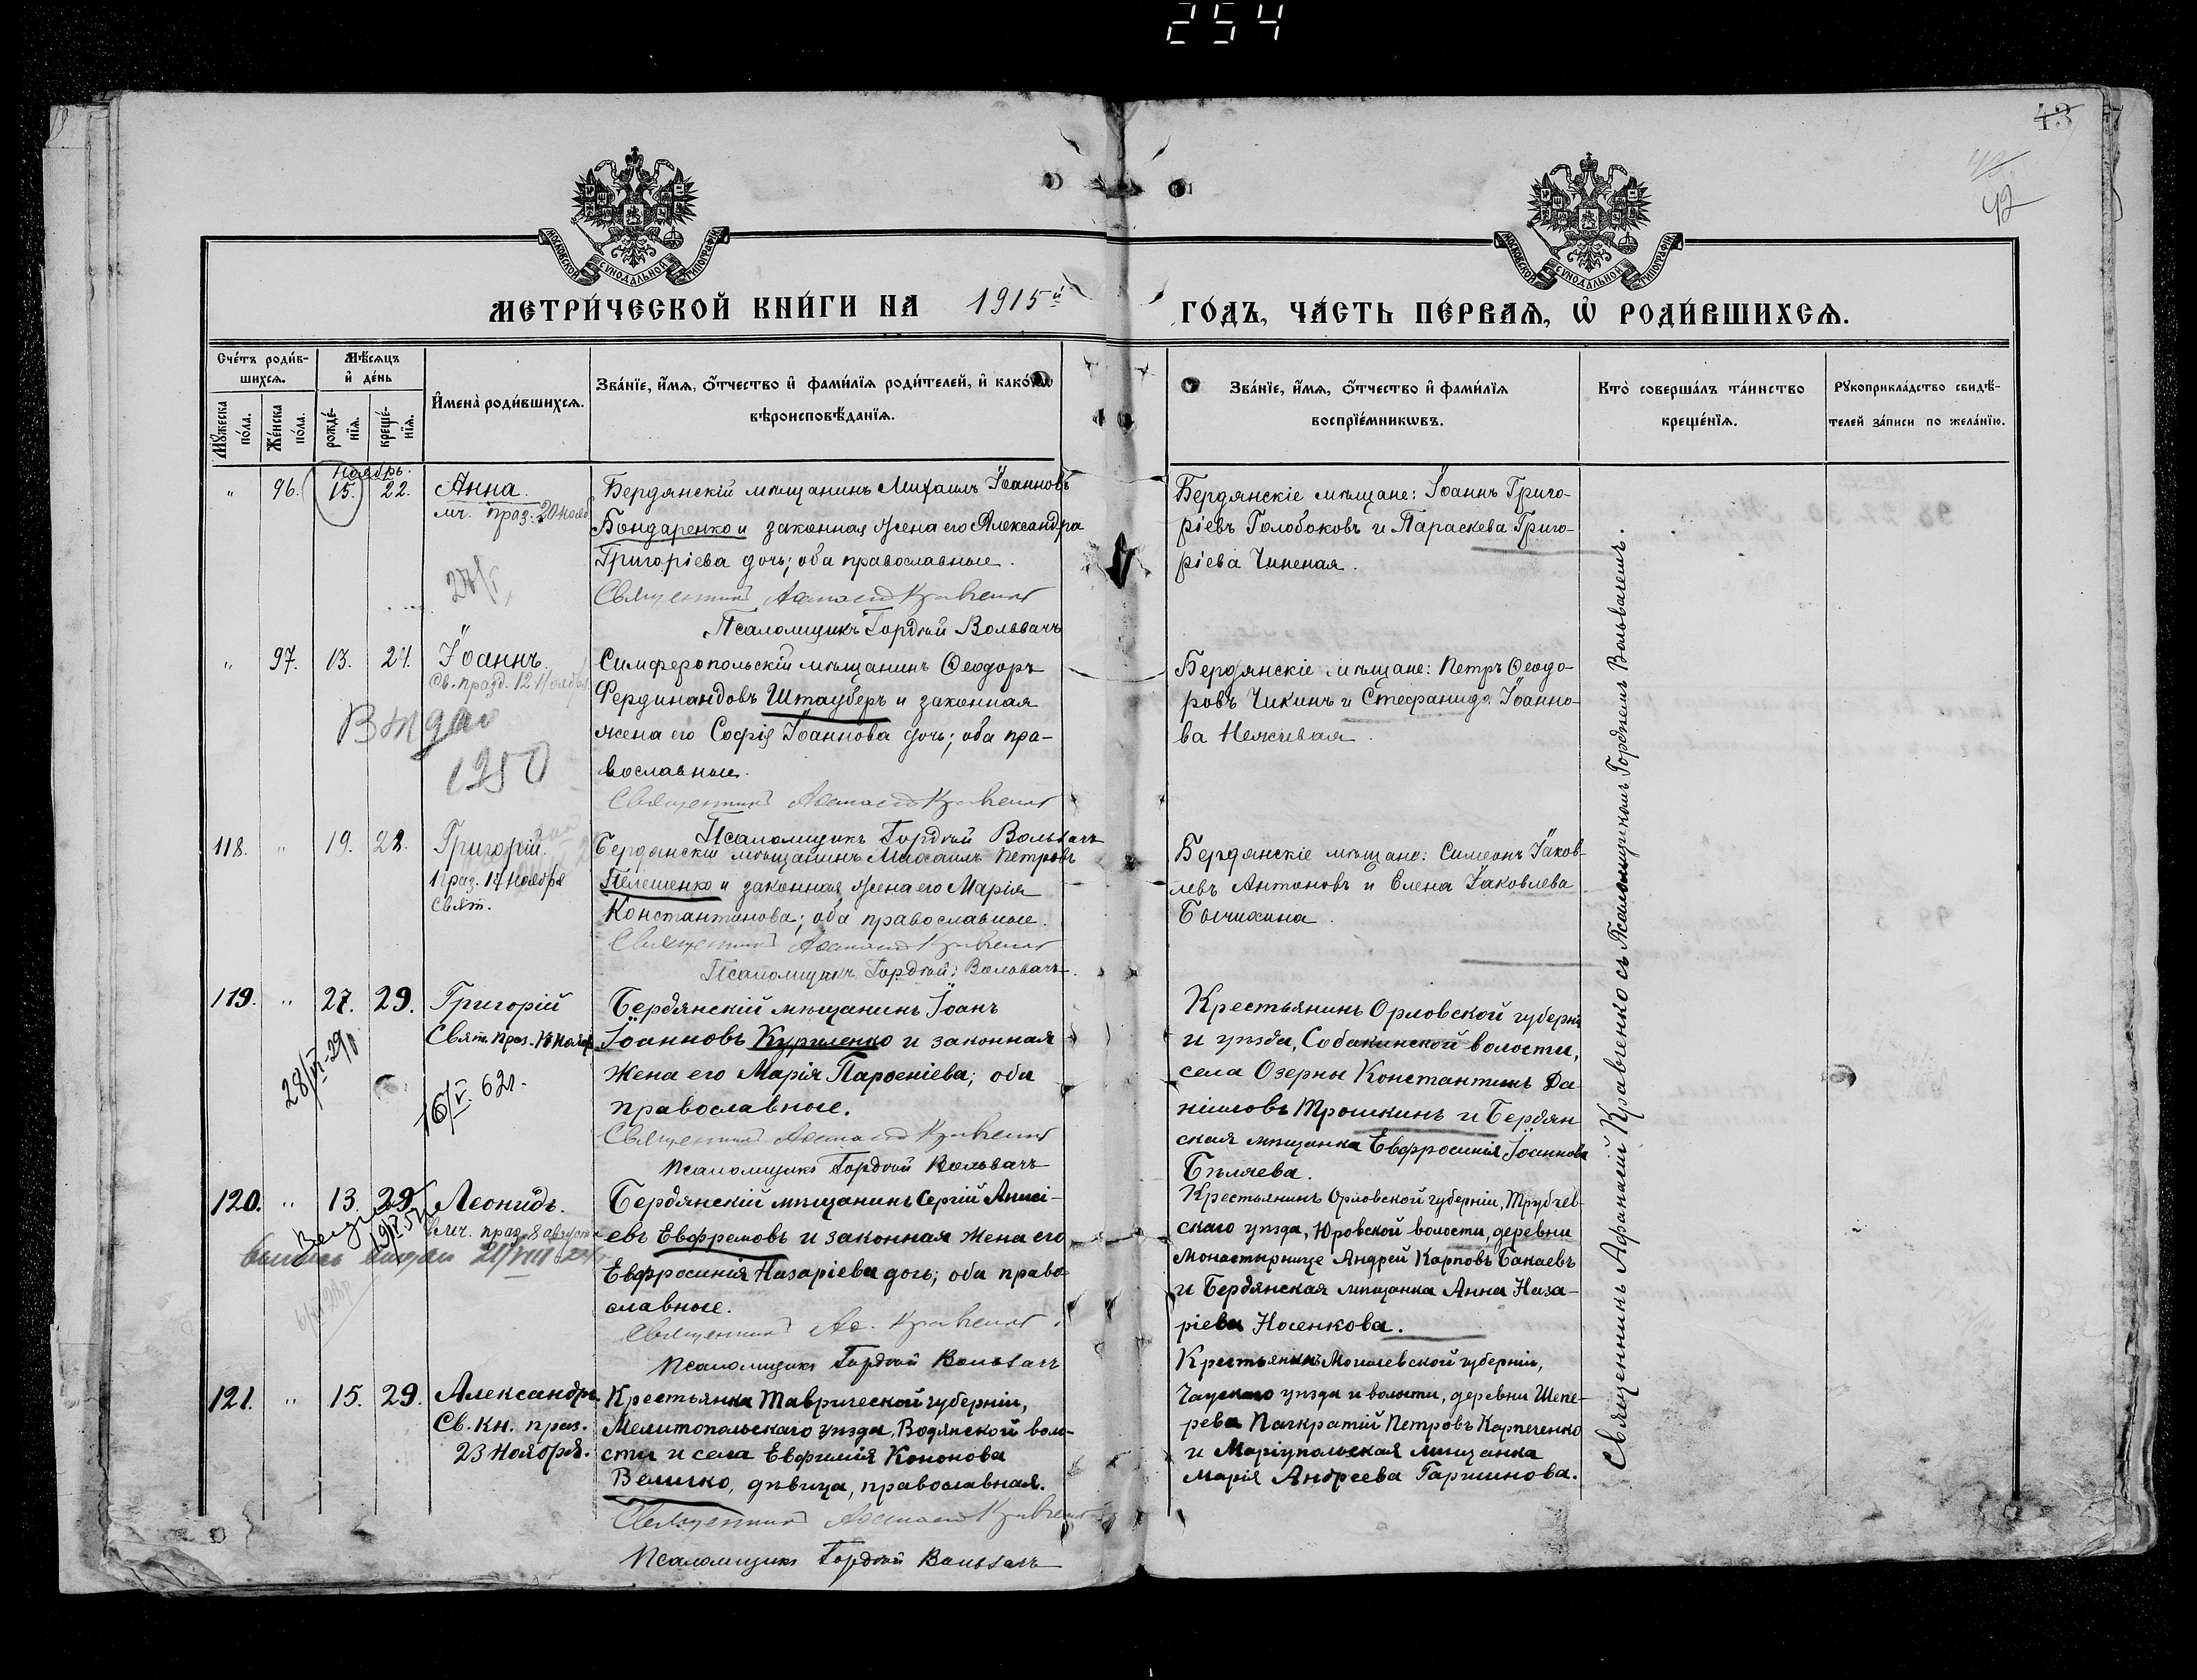 254
43
42
МОСКОВСКОЙ СѴНОДАЛЬНОЙ ТИПОГРАФІИ
МОСКОВСКОЙ СѴНОДАЛЬНОЙ ТИПОГРАФІИ
МЕТРИ́ЧЕСКОЙ КНИ́ГИ НА 1915й ГО́ДЪ, ЧА́СТЬ ПЕ́РВАѦ, Ѡ҆ РОДИ́ВШИХСѦ.
Сче́тъ роди́в-
шихсѧ.
Мѣ́сѧцъ
и҆ де́нь
Мꙋ́жеска по́ла.
Же́нска по́ла.
рожде́-нїѧ.
креще́-нїѧ.
И҆мена̀ роди́вшихсѧ.
Зва́нїе, и҆́мѧ, ѻ҆́тчество и҆ фами́лїѧ роди́телей, и҆ како́гѡ
вѣроисповѣ́данїѧ.
Зва́нїе, и҆́мѧ, ѻ҆́тчество и҆ фами́лїѧ
воспрїе́мникѡвъ.
Кто̀ соверша́лъ та́инство
креще́нїѧ.
Рꙋкоприкла́дство свидѣ́-
телей за́писи по жела́нїю.
Ноябрь.
" 96. 15. 22. Анна.
мч. праз. 20 нояб
Бердянскій мѣщанинъ Михаилъ Іоанновъ
Бондаренко и законная жена его Александра
Григоріева дочь; оба православные.
Священникъ Афанасій Кравченко
Псаломщикъ Гордѣй Вольвачъ
Бердянскіе мѣщане: Іоаннъ Григо-
ріевъ Голобоковъ и Параскева Григо-
ріева Чиненая.
" 97. 13. 24. Іоаннъ.
Св. празд. 12 Ноября
1250
Симферопольскій мѣщанинъ Ѳеодоръ
Фердинандовъ Штауберъ и законная
жена его Софія Іоаннова дочь; оба пра-
вославные.
Священникъ Афанасій Кравченко
Псаломщикъ Гордѣй Вольвачъ
Бердянскіе мѣщане: Петръ Ѳеодо-
ровъ Чикинъ и Стефанида Іоанно-
ва Неживая.
118. " 19. 28. Григорій.
праз. 17 ноября
Свят.
Бердянскій мѣщанинъ Михаилъ Петровъ
Пелешенко и законная жена его Марія
Константинова; оба православные.
Священникъ Афанасій Кравченко
Псаломщикъ Гордѣй Вольвачъ.
Бердянскіе мѣщане: Симеонъ Іаков-
левъ Антоновъ и Елена Іаковлева
Бычихина.
119. " 27. 29. Григорій
Свят. праз. 17 ноябр
16/V. 62г.
Бердянскій мѣщанинъ Іоанъ
Іоанновъ Куриленко и законная
жена его Марія Парѳеніева; оба
православные.
Священникъ Афанасій Кравченко
Псаломщикъ Гордѣй Вольвачъ
Крестьянинъ Орловской губерніи
и уѣзда, Собакинской волости,
села Озерны Константинъ Да-
ніиловъ Трошкинъ и Бердян
ская мѣщанка Евфросинія Іоаннова
Бѣляева.
120. " 13. 29. Леонидъ.
мч. праз. 8 августа
Бердянскій мѣщанинъ Сергій Аниси-
евъ Евфремовъ и законная жена его
Евфросинія Назаріева дочь; оба право-
славные.
Священникъ Аф. Кравченко
Псаломщикъ Гордѣй Вольвачъ
Крестьянинъ Орловской губерніи, Трубчев-
скаго уѣзда, Юровской волости, деревни
Монастырище Андрей Карповъ Бакаевъ
и Бердянская мѣщанка Анна Наза-
ріева Носенкова.
121. " 15. 29. Александръ
Св. Кн. праз.
23 Ноября.
Крестьянка Таврической губерніи,
Мелитопольскаго уѣзда, Водянской воло-
сти и села Евфимія Кононова
Величко, дѣвица, православная.
Священникъ Афанасій Кравченко
Псаломщикъ Гордѣй Вольвачъ
Крестьянинъ Могилевской губерніи,
Чаускаго уѣзда и волости, деревни Шепе-
рева Панкратій Петровъ Карпеченко
и Маріупольская мѣщанка
Марія Андреева Гаршинова.
Священникъ Афанасій Кравченко съ Псаломщикомъ Гордѣемъ Вольвачемъ.